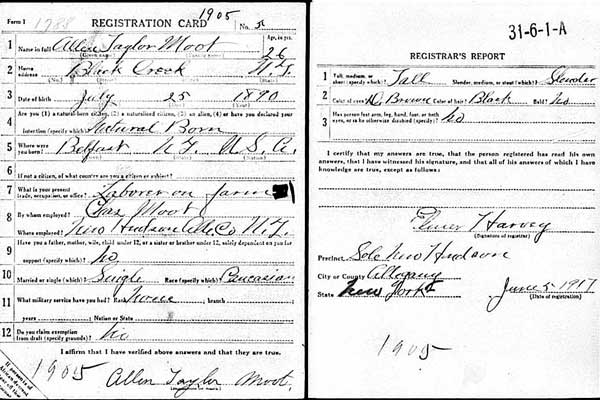 Form 1 1788 REGISTRATION CARD 1905 No. 51
1 Name in full Allen Taylor Moot Age, in yrs. 26
(Given name) (Family name)
2 Home address Black Creek N.Y.
(No.) (Street) (City) (State)
3 Date of birth July 25 1890
(Month) (Day) (Year)
4 Are you (1) a natural-born citizen, (2) a naturalized citizen, (3) an alien, (4) or have you declared your
intention (specify which)? Natural Born
5 Where were you born? Belfast N.Y. U.S.A.
(Town) (State) (Nation)
6 If not a citizen, of what country are you a citizen or subject?
7 What is your present trade, occupation, or office? Laborer on farm
8 By whom employed? Chas Moot
Where employed? New Hudson Alle. Co N.Y.
9 Have you a father, mother, wife, child under 12, or a sister or brother under 12, solely dependent on you for
support (specify which)? No
10 Married or single (which)? Single Race (specify which)? Caucasian
11 What military service have you had? Rank None ; branch
years ; Nation or State
12 Do you claim exemption from draft (specify grounds)? No
I affirm that I have verified above answers and that they are true.
1905 Allen Taylor Moot.
(Signature or mark)
If person is
of African
31-6-1-A
REGISTRAR'S REPORT
1 Tall, medium, or short (specify which)? Tall Slender, medium, or stout (which)? Slender
2 Color of eyes? D. Brown Color of hair? Black Bald? No
3 Has person lost arm, leg, hand, foot, or both
eyes, or is he otherwise disabled (specify)? No
I certify that my answers are true, that the person registered has read his own
answers, that I have witnessed his signature, and that all of his answers of which I
have knowledge are true, except as follows:
Elmer Harvey
(Signature of registrar)
Precinct Sole New Hudson
City or County Allegany
State New York June 5 1917
(Date of registration)
1905